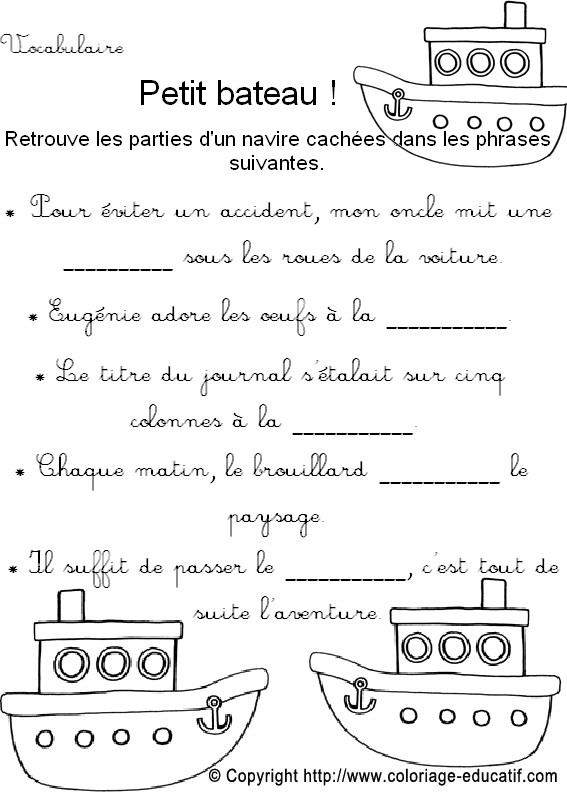 Vocabulaire
Petit bateau !
Retrouve les parties d'un navire cachées dans les phrases
suivantes.
* Pour éviter un accident, mon oncle mit une
__________ sous les roues de la voiture.
* Eugénie adore les œufs à la ___________.
* Le titre du journal s'étalait sur cinq
colonnes à la ___________.
* Chaque matin, le brouillard ___________ le
paysage.
* Il suffit de passer le ___________, c'est tout de
suite l'aventure.
© Copyright http://www.coloriage-educatif.com